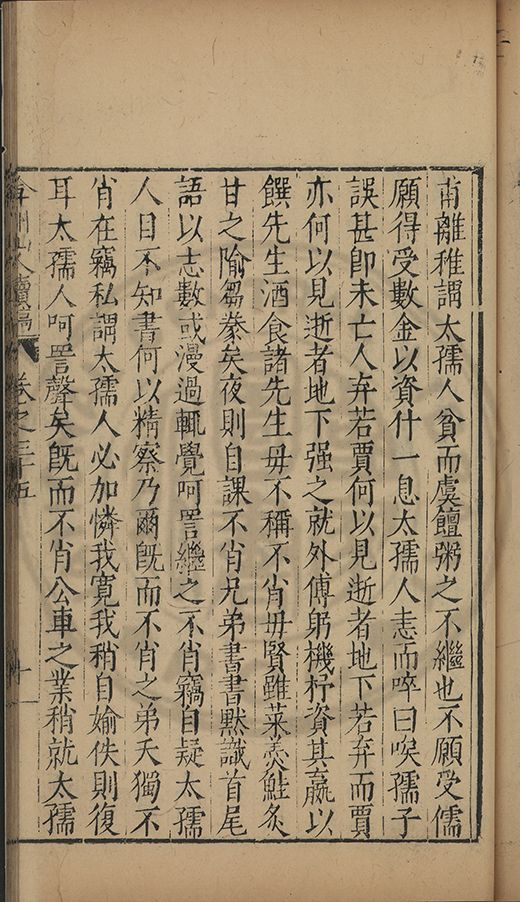 甫離稚謂太孺人貧而虞饘粥之不繼也不願受儒
願得受數金以資什一息太孺人恚而啐曰唉孺子
誤甚卽未亡人弃若賈何以見逝者地下若弃而賈
亦何以見逝者地下强之就外傅躬機杼資其羸以
饌先生酒食諸先生毋不稱不肖毋賢雖菜羮鮭炙
甘之隃芻豢矣夜則自課不肖兄弟書書黙識首尾
語以志數或漫過輒覺呵詈繼之不肖竊自疑太孺
人目不知書何以精察乃爾旣而不肖之弟夭獨不
肖在竊私謂太孺人必加憐我寛我稍自婾佚則復
耳太孺人呵詈聲矣旣而不肖公車之業稍就太孺
弇州山人續稿 卷之三十五 十一